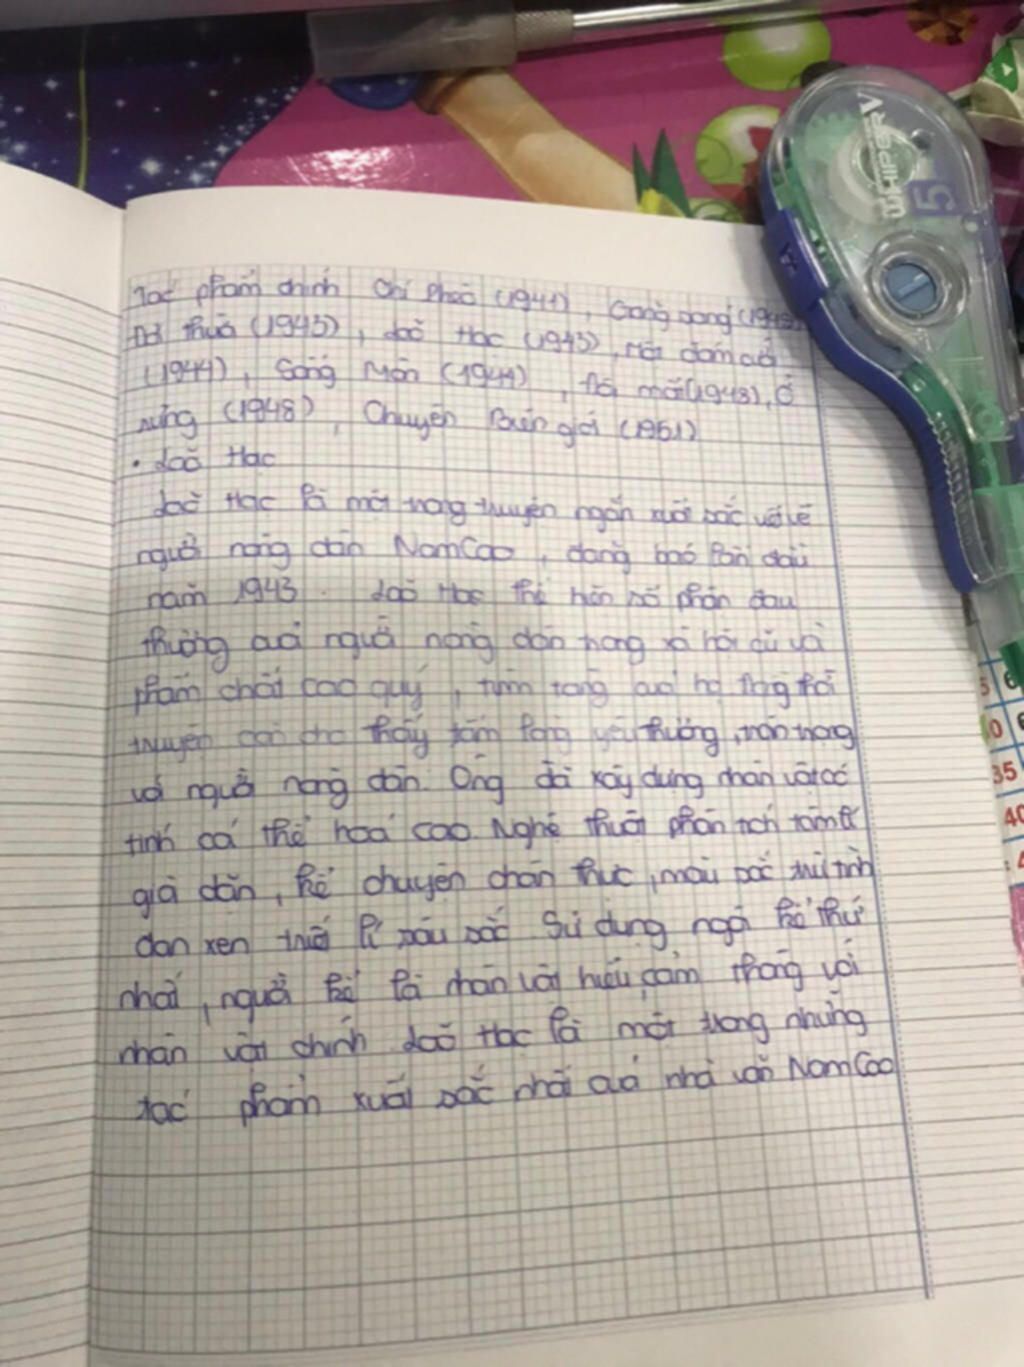 Tác phẩm chính Chí Phèo (1941), Giăng sáng (1942)
Đời thừa (1943), Lão Hạc (1943), Một đám cưới
(1944), Sống Mòn (1944), Đôi mắt (1948), Ở
rừng (1948), Chuyện Biên giới (1951)
• Lão Hạc
Lão Hạc là một trong truyện ngắn xuất sắc viết về
người nông dân Nam Cao, đăng báo lần đầu
năm 1943. Lão Hạc thể hiện số phận đau
thương của người nông dân trong xã hội cũ và
phẩm chất cao quý, tiềm tàng của họ đồng thời
truyện còn cho thấy tấm lòng yêu thương, trân trọng
với người nông dân. Ông đã xây dựng nhân vật có
tính cá thể hoá cao Nghệ thuật phân tích tâm lí
già dặn, kể chuyện chân thực, màu sắc trữ tình
đan xen triết lí sâu sắc Sử dụng ngôi kể thứ
nhất, người kể là nhân vật hiểu, cảm thông với
nhân vật chính Lão Hạc là một trong những
tác phẩm xuất sắc nhất của nhà văn Nam Cao
WHIPER V
5
35
40